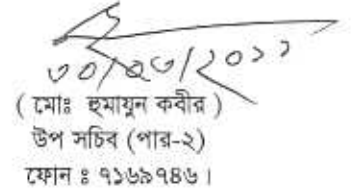 ৩০/০৩/২০১১
( মোঃ হুমায়ুন কবীর )
উপ সচিব (পার-২)
ফোন ঃ ৭১৬৯৭৪৬।